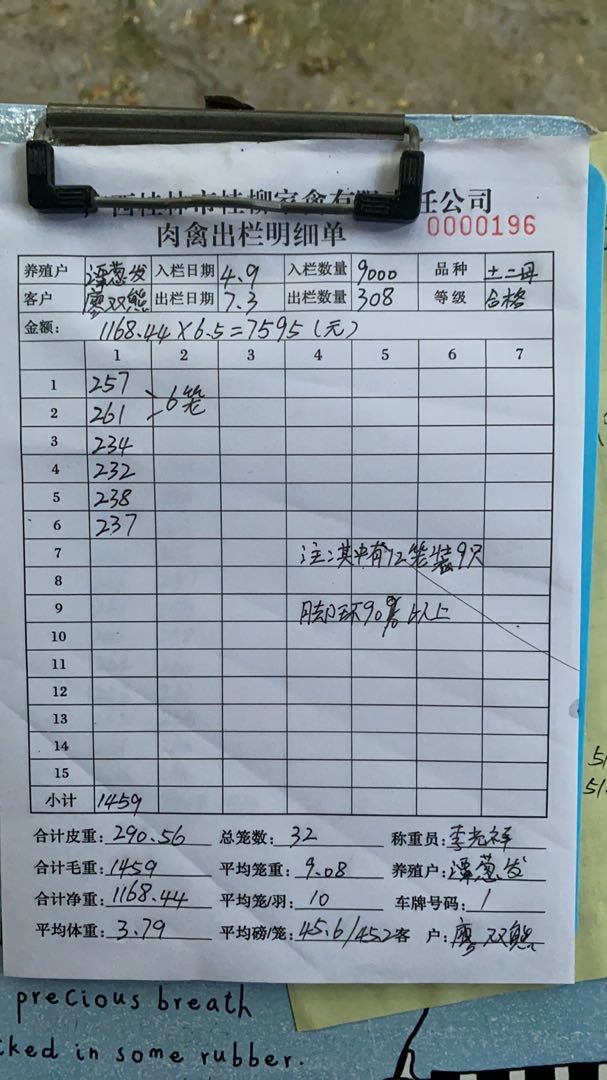 西桂林市桂柳家禽有限责任公司
肉禽出栏明细单 0000196
养殖户 谭葱发 入栏日期 4.9 入栏数量 9000 品种 土二母
客户 廖双熊 出栏日期 7.3 出栏数量 308 等级 合格
金额: 1168.44×6.5=7595(元)
1 2 3 4 5 6 7
1 257
2 261 6笼
3 234
4 232
5 238
6 237
7 注:其中有12笼装9只
8
9 脚环90%以上
10
11
12
13
14
15
小计 1459
合计皮重: 290.56 总笼数: 32 称重员: 李光祥
合计毛重: 1459 平均笼重: 9.08 养殖户: 谭葱发
合计净重: 1168.44 平均笼/羽: 10 车牌号码: 1
平均体重: 3.79 平均磅/笼: 45.6/45.2 客 户: 廖双熊
precious breath
cked in some rubber.